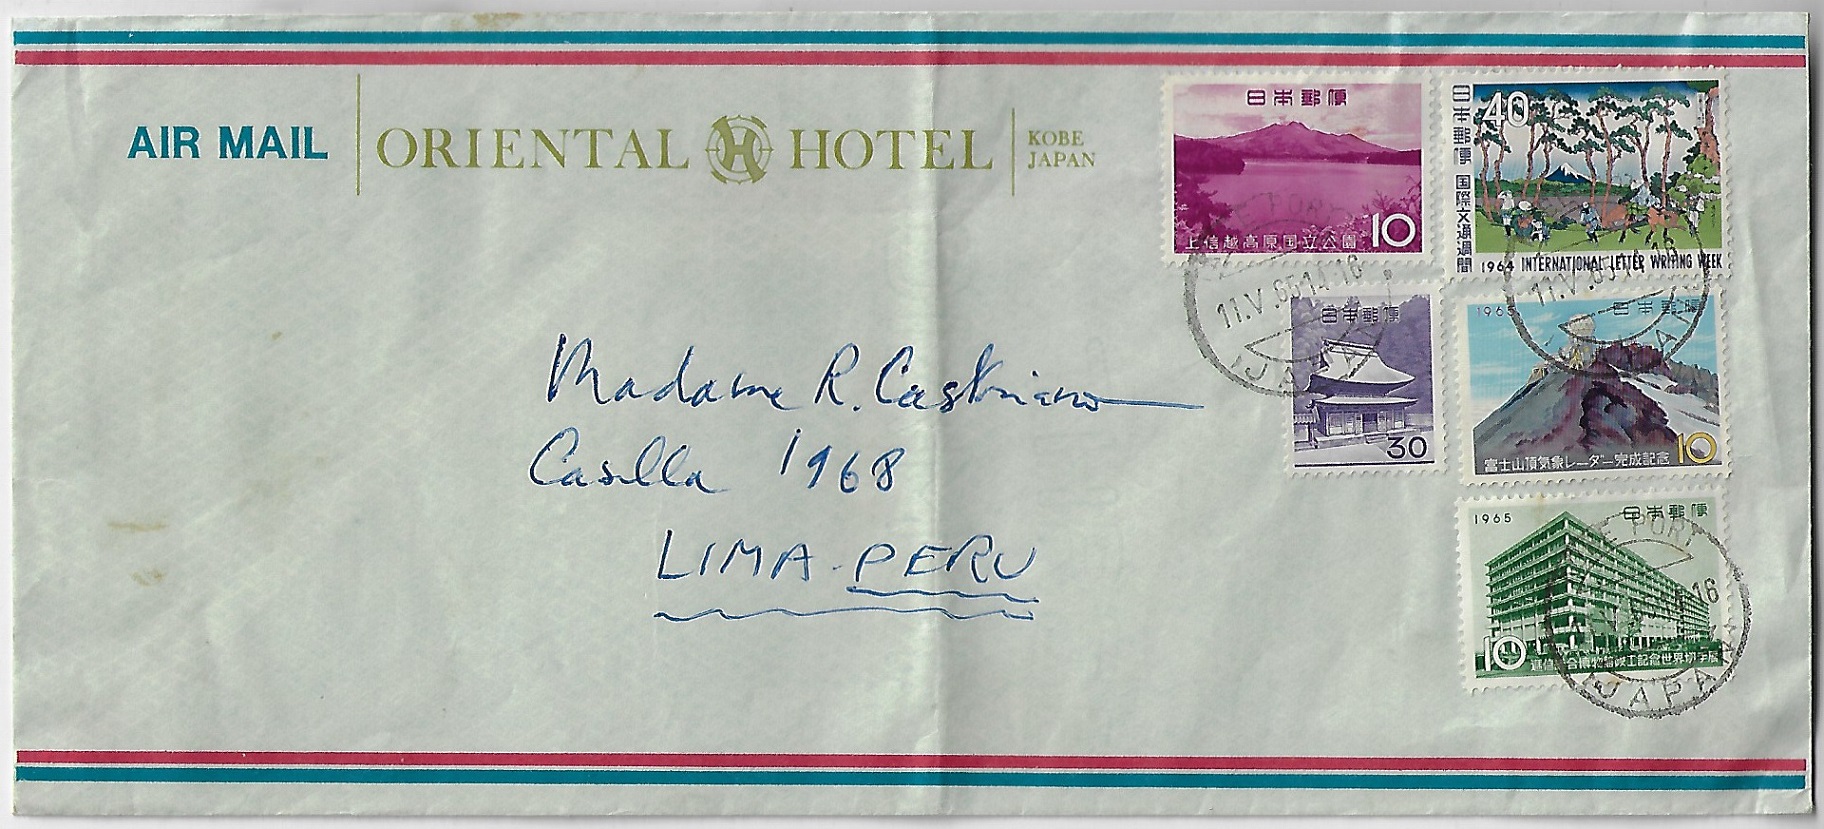 AIR MAIL
ORIENTAL H HOTEL
KOBE
JAPAN
日本郵便
上信越高原国立公園 10
日本郵便 国際文通週間
40
1964 INTERNATIONAL LETTER WRITING WEEK
11.V.65 14-16
JAPAN
日本郵便
30
1965 日本郵便
富士山頂気象レーダー完成記念 10
11.V.65 14-16
JAPAN
1965 日本郵便
10
PORT
JAPAN
Madame R. Castriano
Casilla 1968
LIMA-PERU